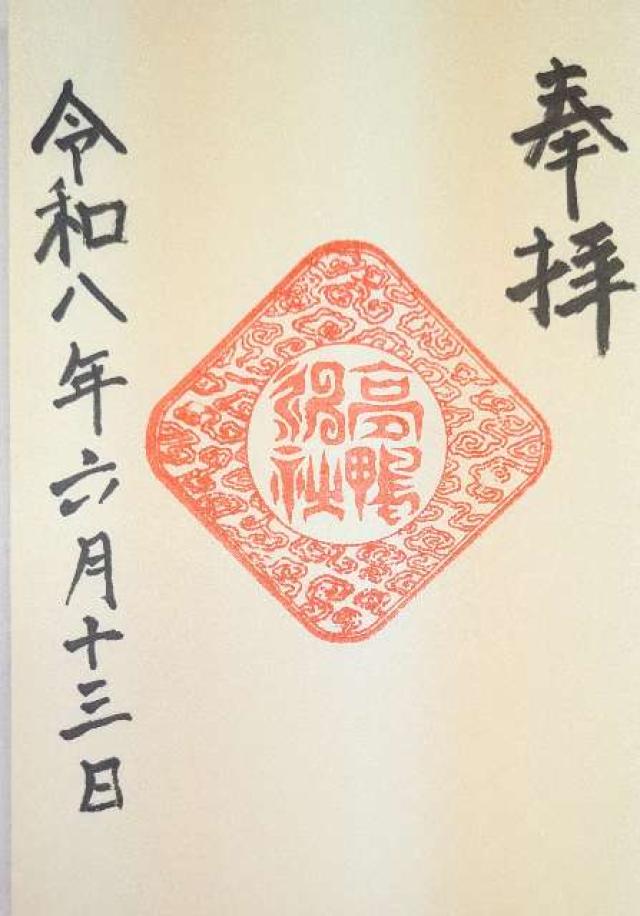 奉拝
高鴨
神社
令和八年六月十三日